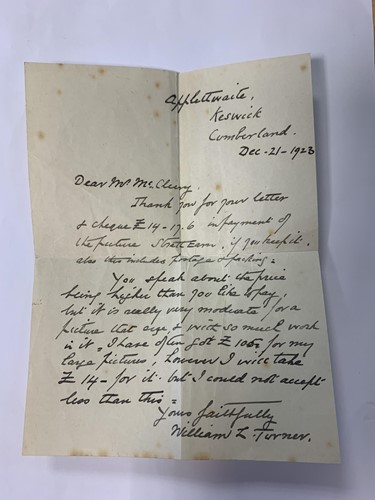 Applethwaite,
Keswick
Cumberland.
Dec-21-1923
Dear Mr Mc.Cluey.
Thank you for your letter
& cheque £14-17.6 in payment of
the picture Strathearn, if you keep it.
also this includes postage & packing.
You speak about the price
being higher than you like to pay,
but it is really very moderate for a
picture that size & with so much work
in it. I have often got £100 for my
large pictures, however I will take
£14- for it. but I could not accept
less than this.
Yours faithfully
William L. Turner.